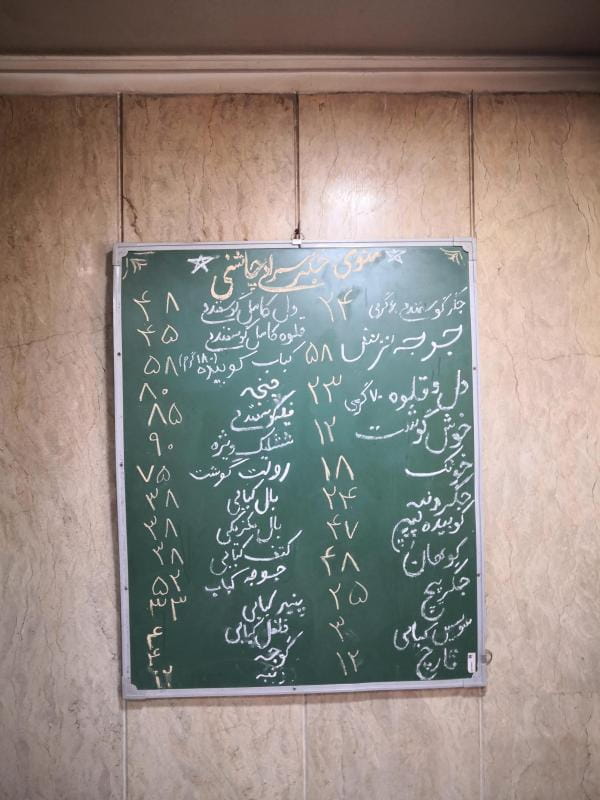 منوی جگر سرای چاشنی
جگر گوسفندی ۶۰ گرمی ۲۴
۵۸
دل و قلوه ۷۰ گرمی ۲۳
خوش گوشت ۱۲
خوئک ۱۸
جگر دنبه ۲۴
کوبیده پیچ ۴۷
کوهان ۴۸
جگر پیچ ۲۵
سوسیس کبابی ۳۰
قارچ ۱۲
دل کامل گوسفندی ۴۸
قلوه کامل گوسفندی ۴۵
کباب کوبیده (۱۸۰ گرم) ۵۸
چنجه ۸۰
فیله گوسفندی ۸۵
ششلیک ویژه ۹۰
رولت گوشت ۷۵
بال کبابی ۳۸
بال مکزیکی ۳۸
کتف کبابی ۳۸
جوجه کباب ۵۲
پنیر کبابی ۳۳
فلفل کبابی ۴
گوجه ۴
دنبه ۱۲